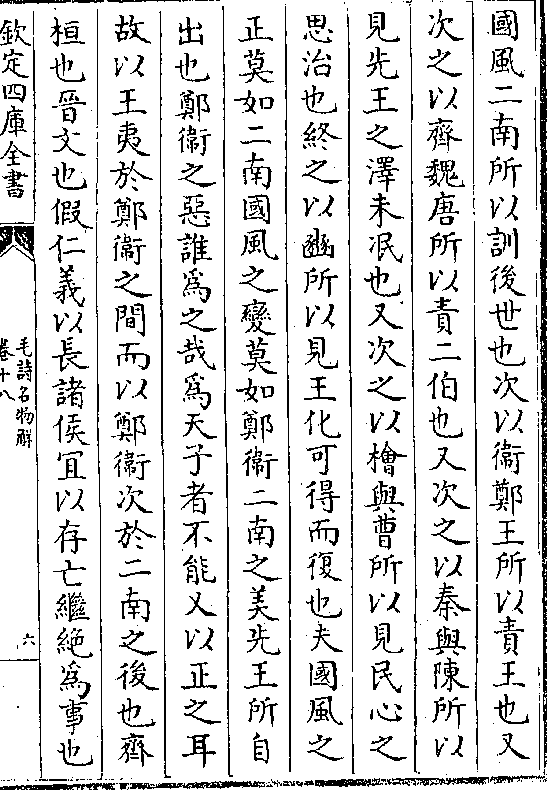 國風二南所以訓後世也次以衞鄭王所以責王也又
次之以齊魏唐所以責二伯也又次之以秦與陳所以
見先王之澤未冺也又次之以檜與曹所以見民心之
思治也終之以豳所以見王化可得而復也夫國風之
正莫如二南國風之變莫如鄭衞二南之美先王所自
出也鄭衞之惡誰爲之哉爲天子者不能乂以正之耳
故以王夷於鄭衞之間而以鄭衞次於二南之後也齊
桓也晉文也假仁義以長諸侯宜以存亡繼絶爲事也
欽定四庫全書
毛詩名物解
卷十八
六